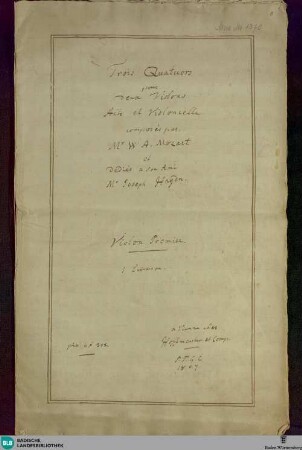 Trois Quatuors
pour
deux Violons
Alto et Violoncelle
composés par
Mr W. A. Mozart
et
Dediés a son Ami
Mr Joseph Haydn.
Violon Primier
1 Livraison
a Vienne chez
Hoffmeister et Comp.
BLB
BADISCHE
LANDESBIBLIOTHEK
Baden-Württemberg